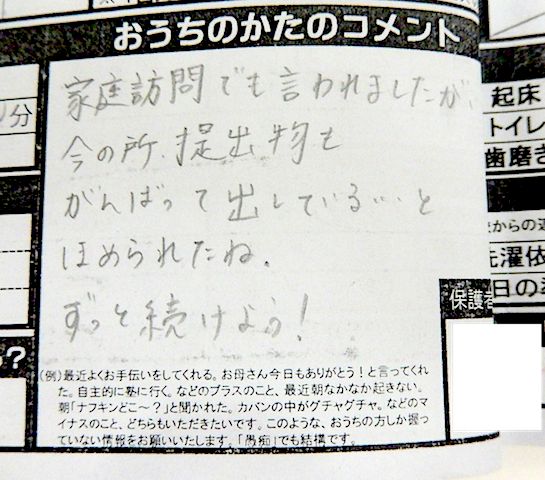 おうちのかたのコメント
家庭訪問でも言われましたが、
今の所、提出物も
がんばって出している…と
ほめられたね。
ずっと続けよう!
(例)最近よくお手伝いをしてくれる。お母さん今日もありがとう!と言ってくれ
た。自主的に塾に行く。などのプラスのこと、最近朝なかなか起きない。
朝「ナフキンどこ～?」と聞かれた。カバンの中がグチャグチャ。などのマ
イナスのこと、どちらもいただきたいです。このような、おうちの方しか握っ
ていない情報をお願いいたします。「愚痴」でも結構です。
保護者
分
?
起床
トイレ
歯磨き
からの
洗濯依
日の